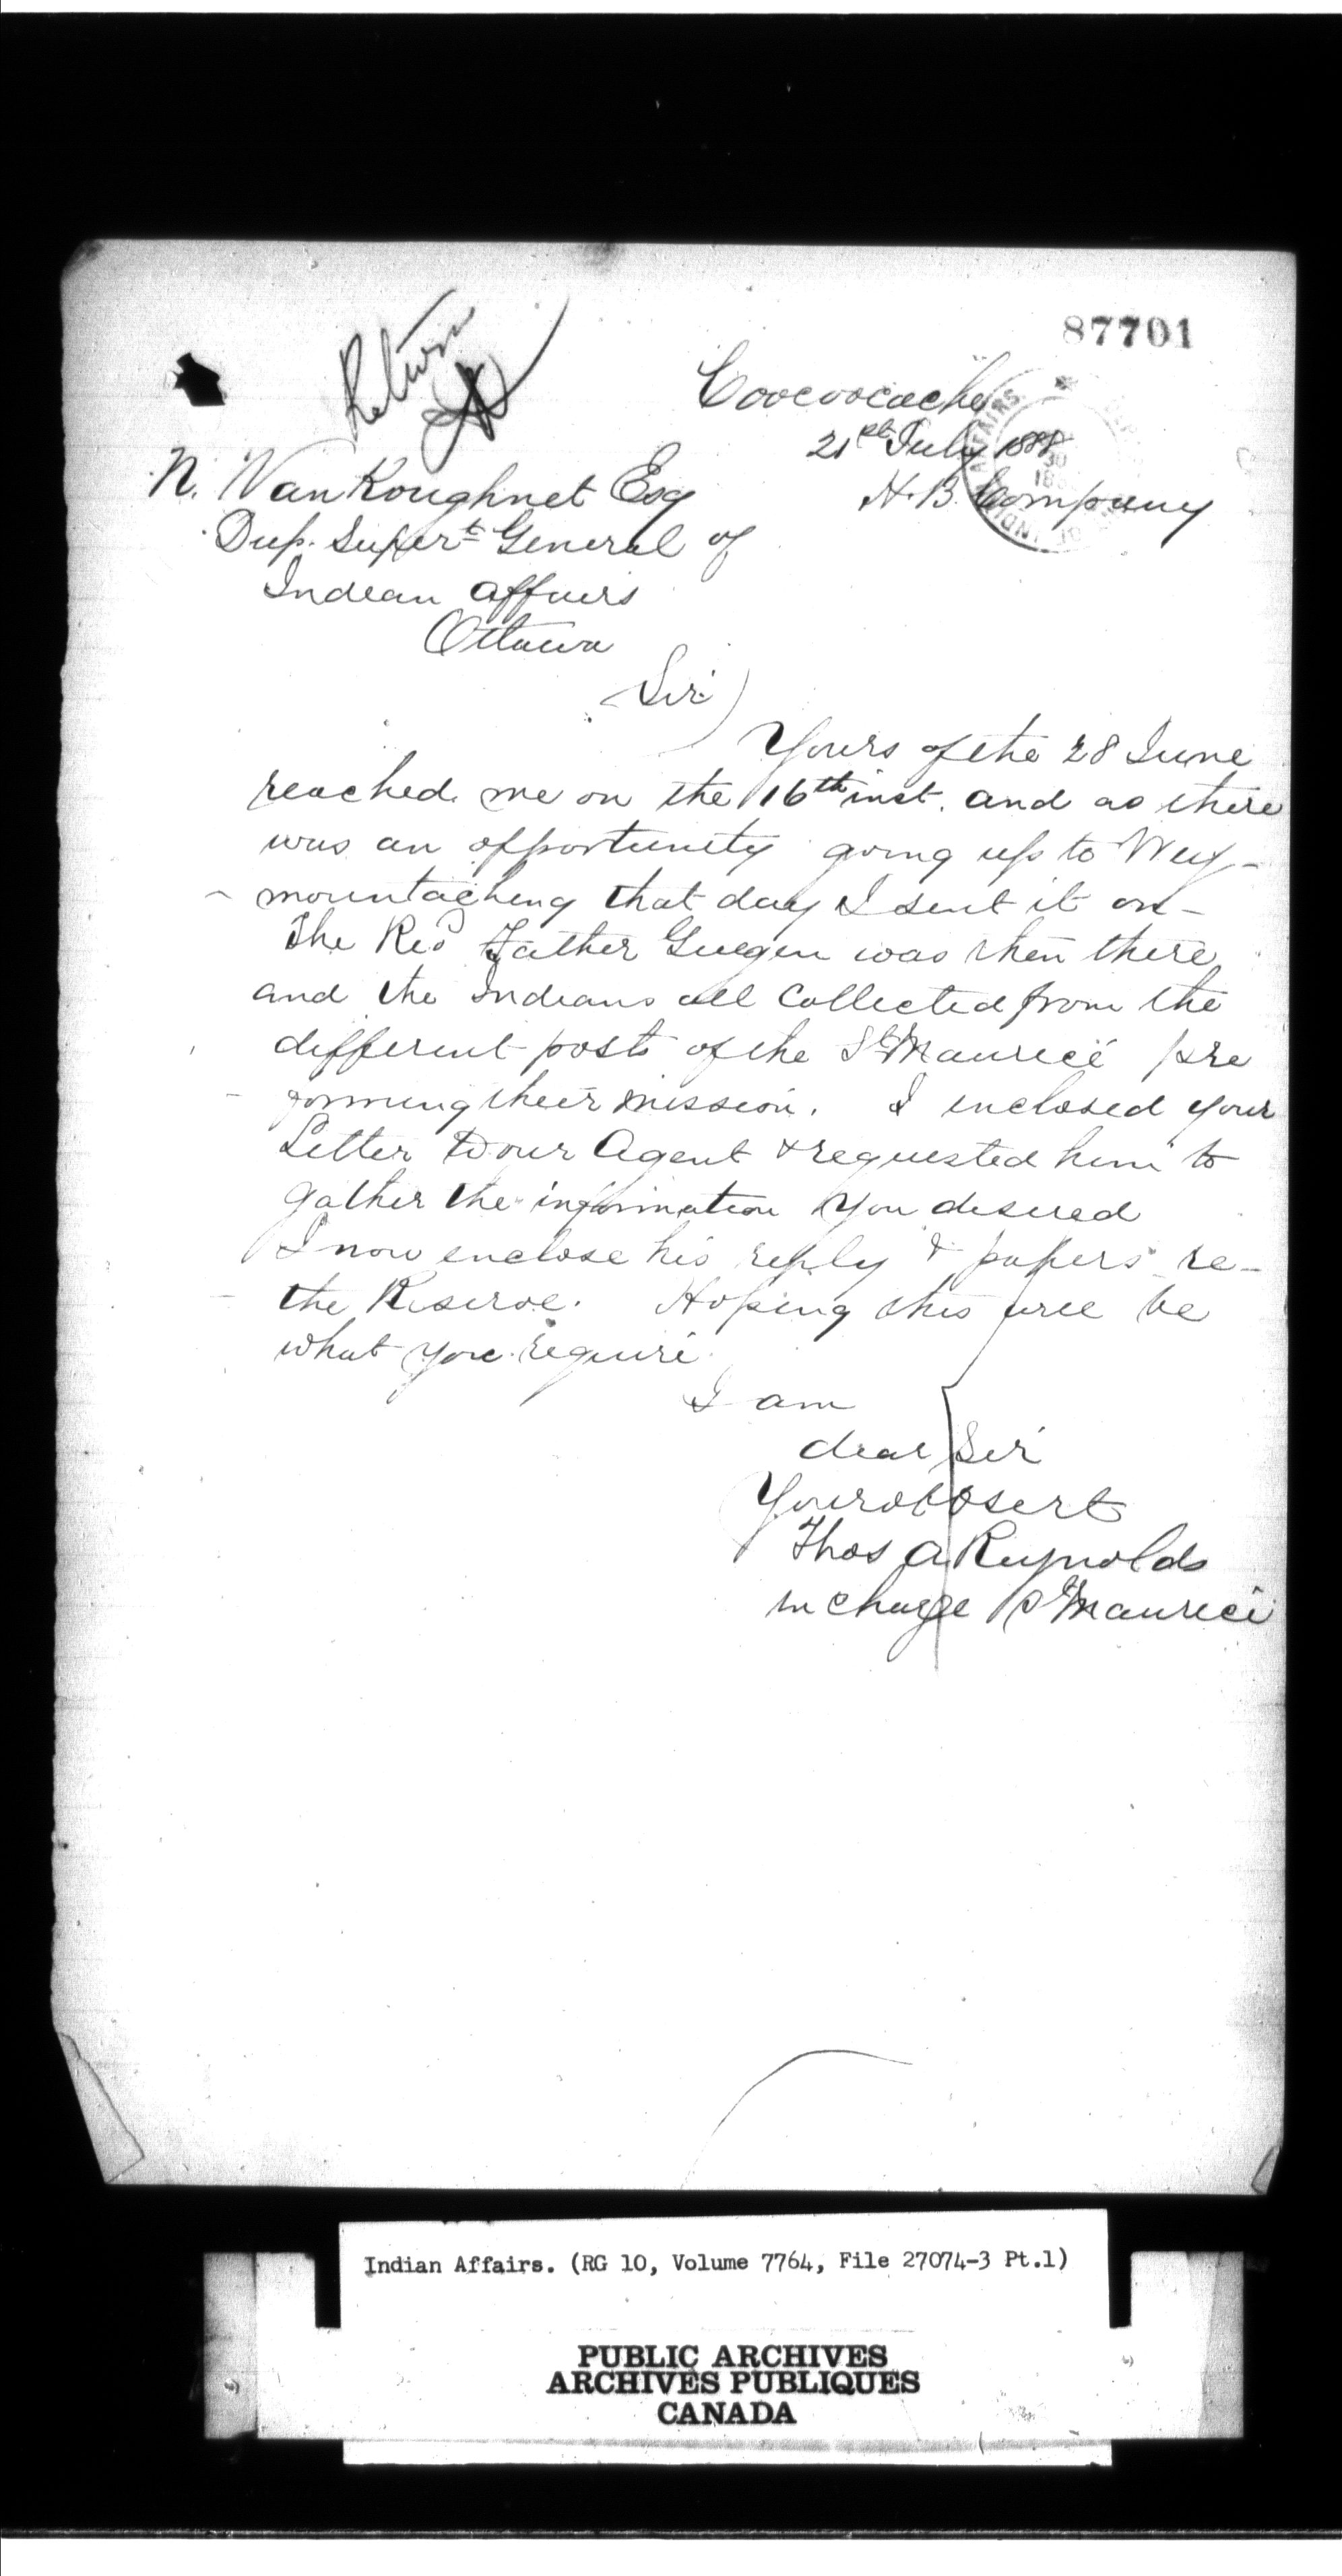 87701
Return
Coocoocache
21st July 1888
H. B. Company
N. VanKoughnet Esq
Dup. Supert General of
Indian Affairs
Ottawa
Sir
Yours of the 28 June
reached me on the 16th inst. and as there
was an opportunity going up to Wey-
mountaching that day I sent it on -
The Revd Father Guegen was then there
and the Indians all Collected from the
different posts of the St Maurice pre
forming their mission. I enclosed your
Letter to our Agent & requested him to
gather the information you desired
I now enclose his reply & papers re-
the Reserve. Hoping this will be
what you require
I am
dear Sir
Your obt Sert
Thos A Reynolds
in charge St Maurice
Indian Affairs. (RG 10, Volume 7764, File 27074-3 Pt.1)
PUBLIC ARCHIVES
ARCHIVES PUBLIQUES
CANADA